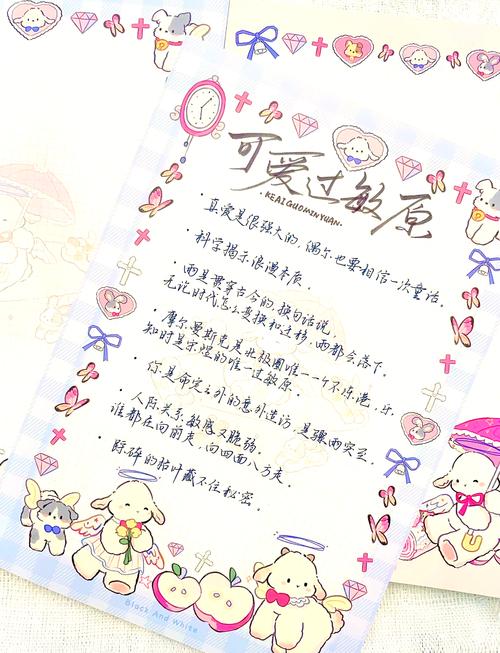 可爱过敏原
·KEAIGUOMINYUAN·
·真爱是很强大的,偶尔也要相信一次童话。
·科学揭示浪漫本质。
·雨是贯穿古今的,换句话说,
无论时代怎么变换和迁移,雨都会落下。
·摩尔曼斯克是北极圈唯一一个不冻港,乐
知时是宋煜的唯一过敏原。
·你是命定之外的意外造访,是骤雨突至。
·人际关系敏感又脆弱。
谁都在向前走,向四面八方走。
·际碎的枯叶藏不住秘密。
Black And White